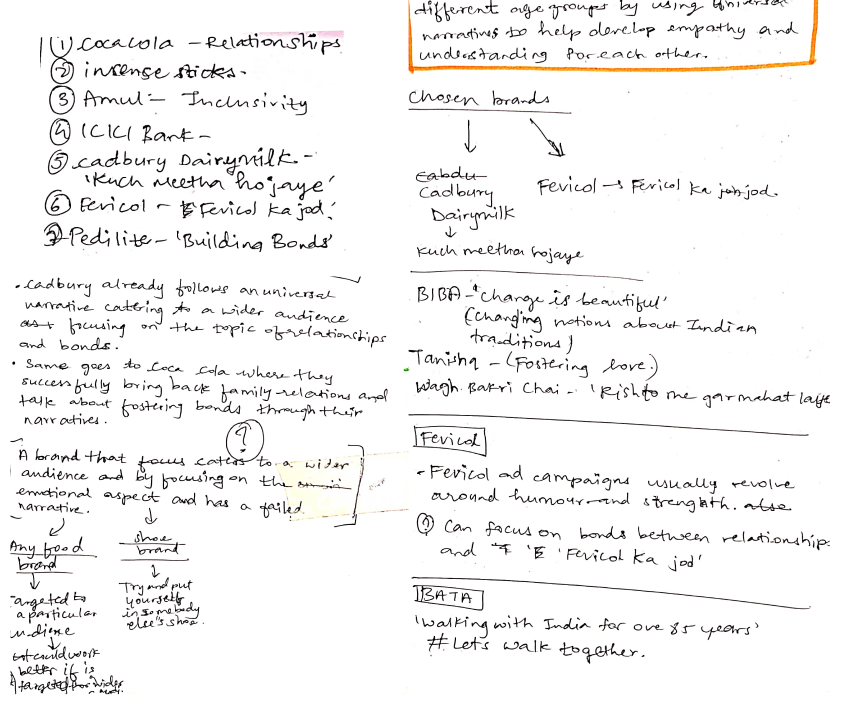 ① Cocacola – Relationships
② insense sticks.
③ Amul :– Inclusivity
④ ICICI Bank –
⑤ Cadbury Dairymilk. –
'Kuch meetha hojaye'
⑥ Fevicol – Fevicol Ka jod.'
⑦ Pedilite – 'Building Bonds'
• Cadbury already follows an universal
narrative catering to a wider audience
focusing on the topic of relationships
and bonds.
• Same goes to Coca Cola where they
successfully bring back family relations and
talk about fostering bonds through their
narratives.
?
A brand that focus caters to a wider
audience and by focusing on the
emotional aspect and has a failed
narrative.
Any food
brand
targeted to
a particular
audience
could work
better if is
targeted for wider
shoe
brand
Try and put
yourself
in somebody
else's shoe.
different age groups by using Universal
narratives to help develop empathy and
understanding for each other.
Chosen brands
Cadbury
Dairymilk
Kuch meetha hojaye
Fevicol → Fevicol Ka jod.
BIBA – "Change is beautiful'
(Changing notions about Indian
traditions)
Tanishq – (Fostering love.)
Wagh Bakri Chai – 'Rishto me garmahat laye
Fevicol
– Fevicol ad campaigns usually revolve
around humour and strength. also
? Can focus on bonds between relationships
and 'Fevicol Ka jod'
BATA
'Walking with India for ove 85 years'
# Let's walk together.